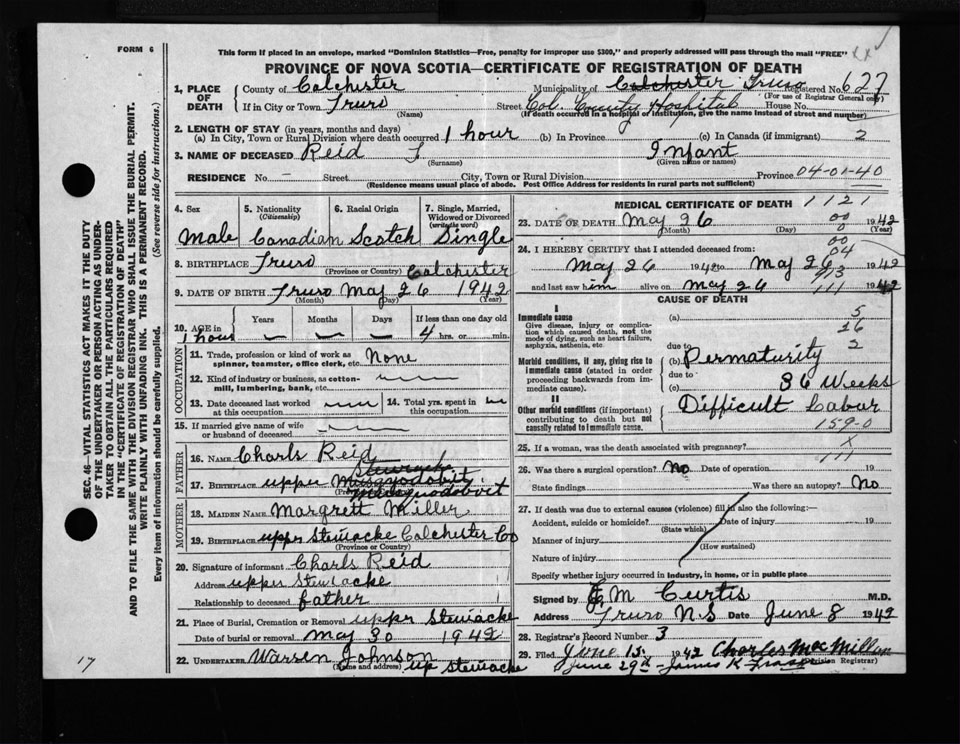 FORM 6
This form if placed in an envelope, marked "Dominion Statistics—Free, penalty for improper use $300," and properly addressed will pass through the mail "FREE"
PROVINCE OF NOVA SCOTIA—CERTIFICATE OF REGISTRATION OF DEATH
1. PLACE OF DEATH
County of Colchester Municipality of Colchester Truro Registered No. 627
(For use of Registrar General only)
If in City or Town Truro Street Col. County Hospital House No.
(Name) (If death occurred in a hospital or institution, give the name instead of street and number)
2. LENGTH OF STAY (in years, months and days)
(a) In City, Town or Rural Division where death occurred 1 hour (b) In Province (c) In Canada (if immigrant) 2
3. NAME OF DECEASED Reid Infant
(Surname) (Given name or names)
RESIDENCE No. — Street City, Town or Rural Division Province 04-01-40
(Residence means usual place of abode. Post Office Address for residents in rural parts not sufficient)
4. Sex Male
5. Nationality (Citizenship) Canadian
6. Racial Origin Scotch
7. Single, Married, Widowed or Divorced (write the word) Single
8. BIRTHPLACE Truro Colchester
(Province or Country)
9. DATE OF BIRTH Truro May 26 1942
(Month) (Day) (Year)
10. AGE in 1 hour
Years Months Days If less than one day old
4 hrs. or min.
OCCUPATION
11. Trade, profession or kind of work as spinner, teamster, office clerk, etc. None
12. Kind of industry or business, as cotton-mill, lumbering, bank, etc.
13. Date deceased last worked at this occupation
14. Total yrs. spent in this occupation
15. If married give name of wife or husband of deceased
FATHER
16. NAME Charls Reid
17. BIRTHPLACE upper Musquodobit
Stewiacke
Musquodoboit
MOTHER
18. MAIDEN NAME Margrett Miller
19. BIRTHPLACE upper Stewiacke Colchester Co
(Province or Country)
20. Signature of informant Charls Reid
Address upper Stewiacke
Relationship to deceased father
21. Place of Burial, Cremation or Removal upper Stewiacke
Date of burial or removal May 30 1942
22. UNDERTAKER Warren Johnson
(Name and address) up Stewiacke
MEDICAL CERTIFICATE OF DEATH 1121
23. DATE OF DEATH May 26 1942
(Month) (Day) (Year)
00
0
00
24. I HEREBY CERTIFY that I attended deceased from:
04
May 26 1942 to May 26 1942
and last saw him alive on May 26 1942
111
CAUSE OF DEATH
I
Immediate cause
Give disease, injury or complication which caused death, not the mode of dying, such as heart failure, asphyxia, asthenia, etc.
(a) 5
26
2
due to
Morbid conditions, if any, giving rise to immediate cause (stated in order proceeding backwards from immediate cause).
(b) Permaturity
due to
(c) 36 Weeks
II
Other morbid conditions (if important) contributing to death but not causally related to immediate cause.
Difficult Labur
159-0
25. If a woman, was the death associated with pregnancy? X
111
26. Was there a surgical operation? No Date of operation 19
State findings Was there an autopsy? No
27. If death was due to external causes (violence) fill in also the following:—
Accident, suicide or homicide? Date of injury 19
(State which)
Manner of injury
(How sustained)
Nature of injury
Specify whether injury occurred in industry, in home, or in public place
Signed by E M Curtis M.D.
Address Truro N.S Date June 8 1942
28. Registrar's Record Number 3
29. Filed June 15 1942 Charles MacMillan
(Division Registrar)
June 29th - James K Fraser
SEC. 46—VITAL STATISTICS ACT MAKES IT THE DUTY OF THE UNDERTAKER OR PERSON ACTING AS UNDERTAKER TO OBTAIN ALL THE PARTICULARS REQUIRED IN THE "CERTIFICATE OF REGISTRATION OF DEATH"
AND TO FILE THE SAME WITH THE DIVISION REGISTRAR WHO SHALL ISSUE THE BURIAL PERMIT.
WRITE PLAINLY WITH UNFADING INK. THIS IS A PERMANENT RECORD.
Every item of information should be carefully supplied. (See reverse side for instructions.)
17